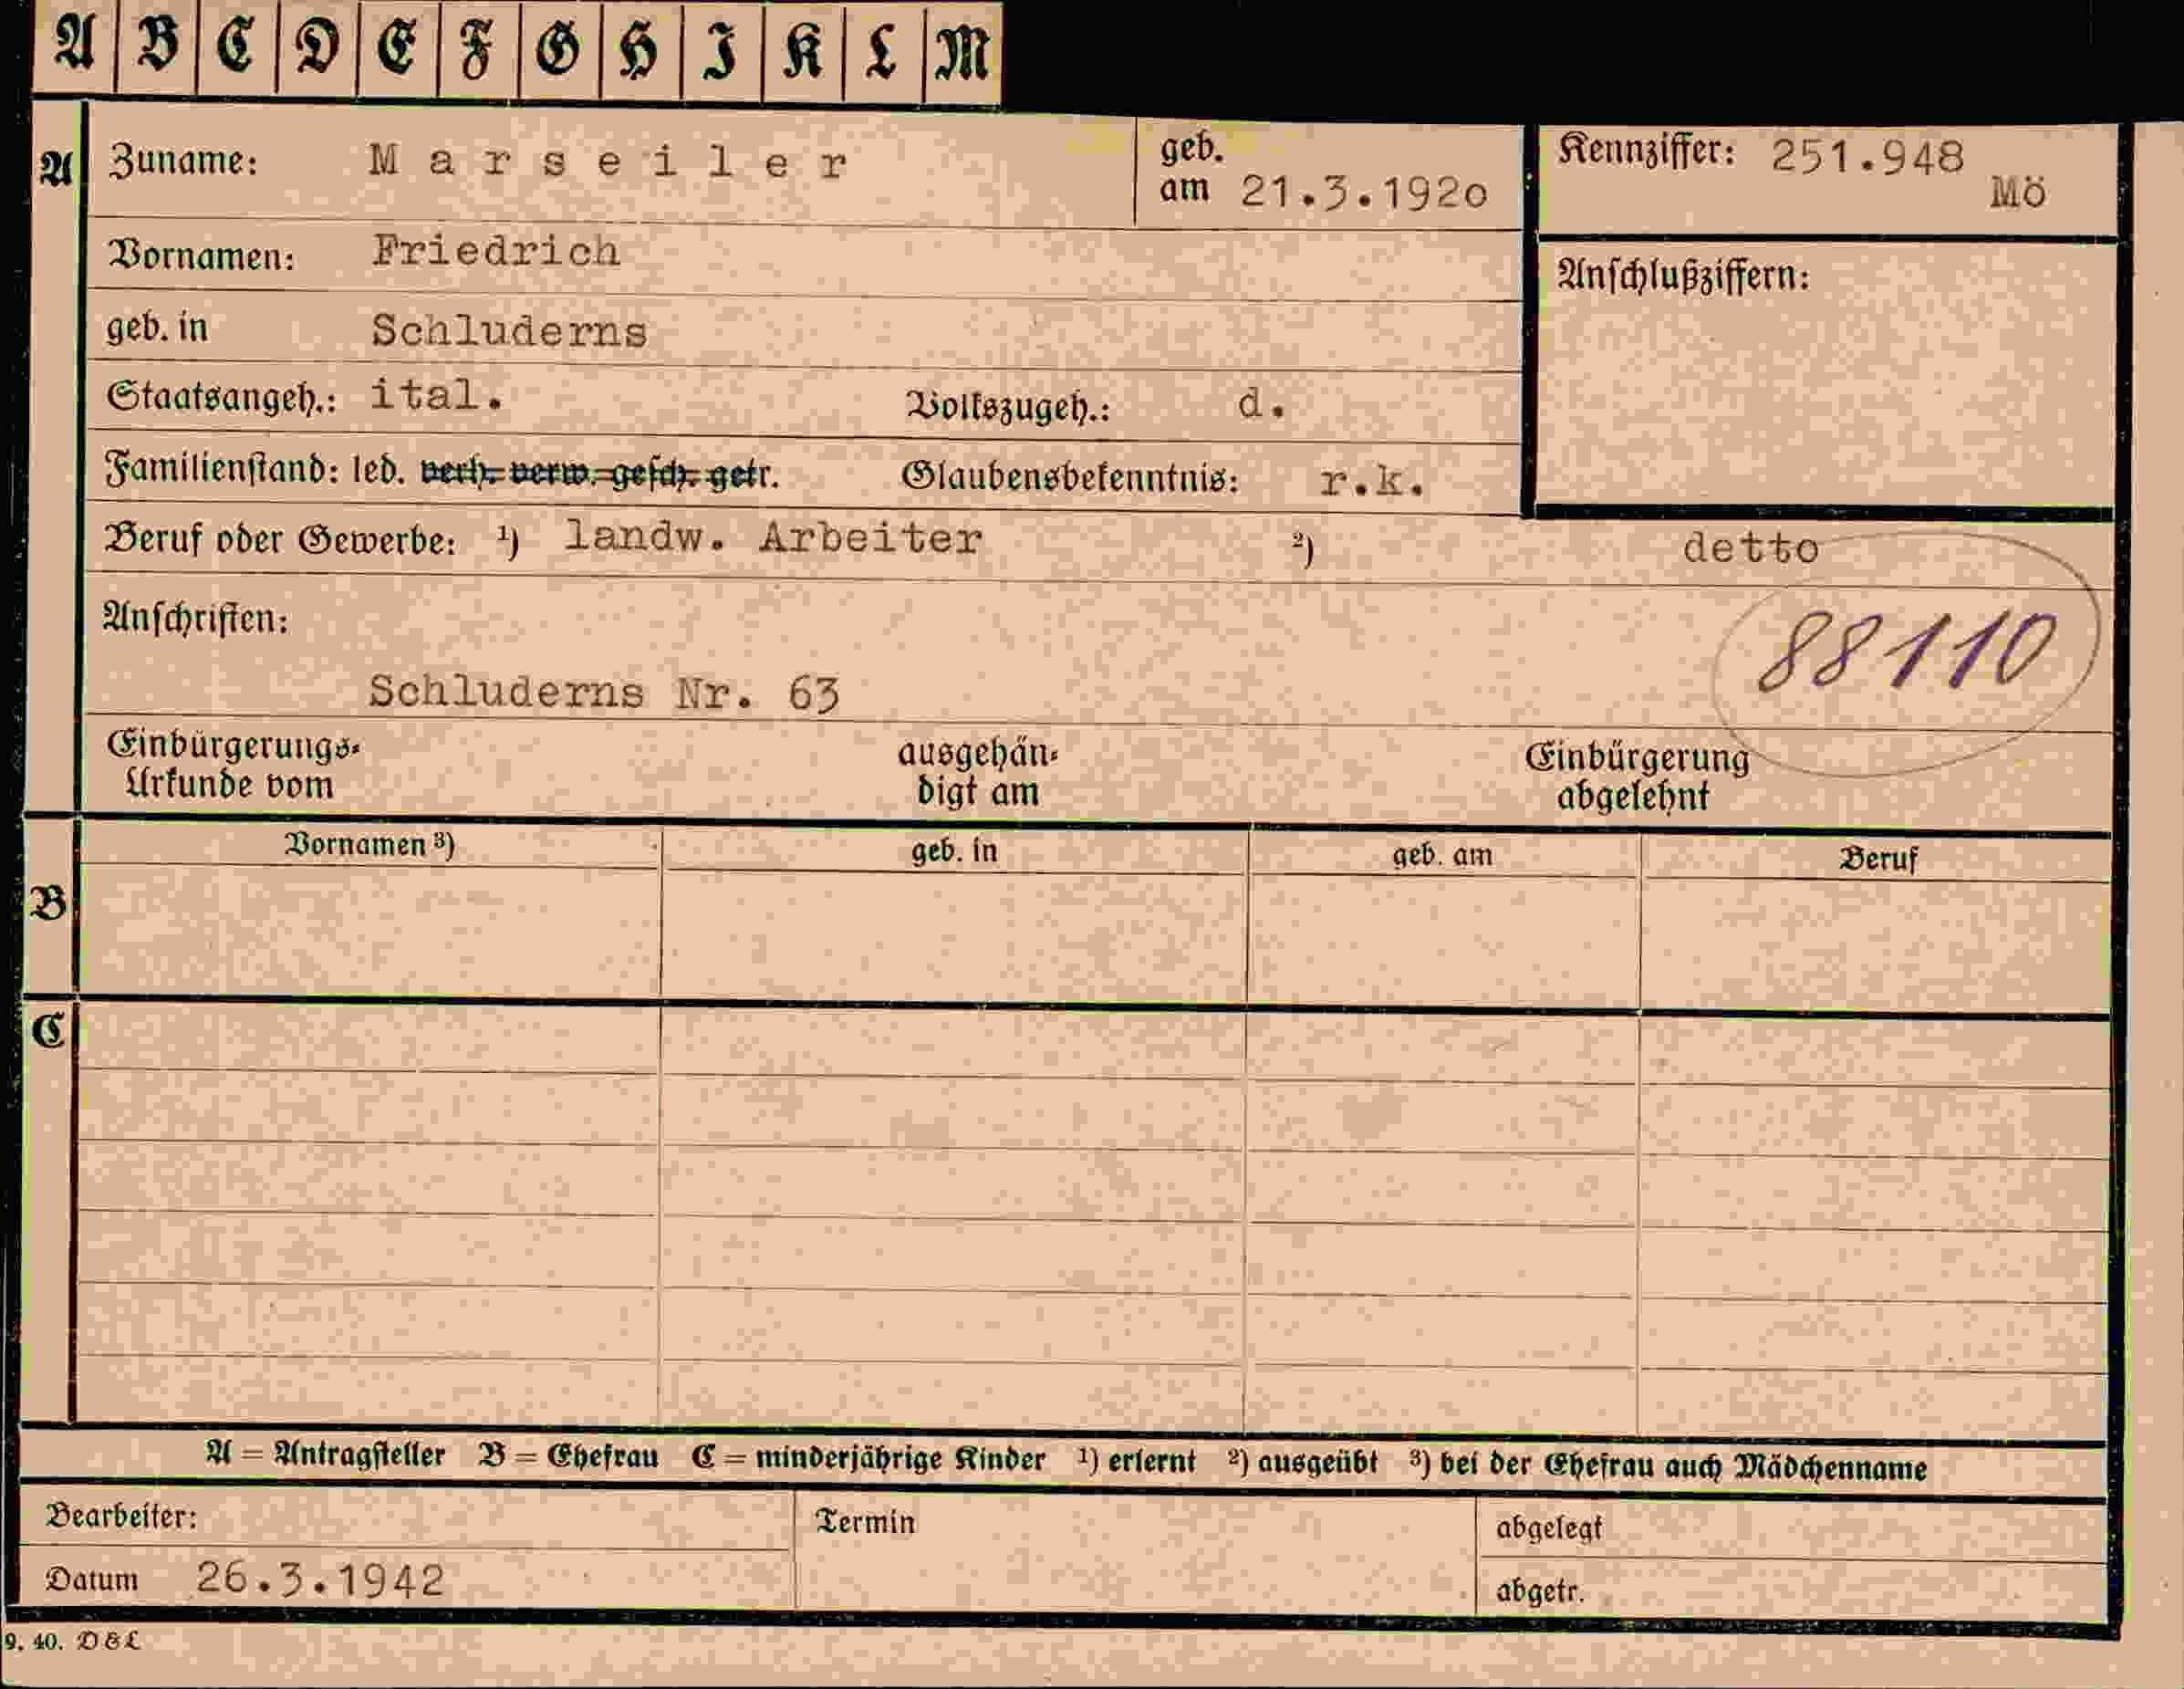 A B C D E F G H I K L M
A Zuname: Marseiler geb. am 21.3.1920 Kennziffer: 251.948 Mö
Vornamen: Friedrich
Anschlußziffern:
geb. in Schluderns
Staatsangeh.: ital. Volkszugeh.: d.
Familienstand: led. verh. verw. gesch. getr. Glaubensbekenntnis: r.k.
Beruf oder Gewerbe: ¹) landw. Arbeiter ²) detto
Anschriften:
88110
Schluderns Nr. 63
Einbürgerungs-
Urkunde vom
ausgehän-
digt am
Einbürgerung
abgelehnt
B Vornamen ³) geb. in geb. am Beruf
C
A = Antragsteller B = Ehefrau C = minderjährige Kinder ¹) erlernt ²) ausgeübt ³) bei der Ehefrau auch Mädchenname
Bearbeiter: Termin abgelegt
Datum 26.3.1942 abgetr.
9. 40. D & L